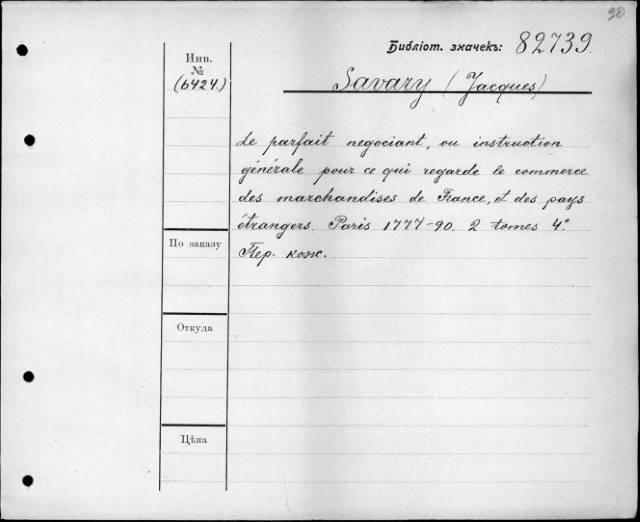 90
Библіот. значекъ: 82739.
Инв.
№
(6424.)
Savary (Jacques)
Le parfait negociant, ou instruction
générale pour ce qui regarde le commerce
des marchandises de France, et des pays
étrangers. Paris 1777-90. 2 tomes 4º
Пер. кож.
По заказу
Откуда
Цѣна